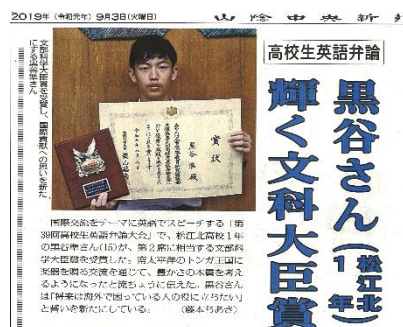 2019年(令和元年)9月3日(火曜日)
山陰中央新
高校生英語弁論
黒谷さん(松江北1年)
輝く文科大臣賞
文部科学大臣賞を受賞し、国際貢献への思いを新た
にする黒谷隼さん
賞状
黒谷隼殿
国際交流をテーマに英語でスピーチする「第
39回高校生英語弁論大会」で、松江北高校1年
の黒谷隼さん(15)が、第2席に相当する文部科
学大臣賞を受賞した。南太平洋のトンガ王国に
楽器を贈る交流を通じて、豊かさの本質を考え
るようになったと流ちょうに伝えた。黒谷さん
は「将来は海外で困っている人の役に立ちたい」
と誓いを新たにしている。(藤本ちあき)